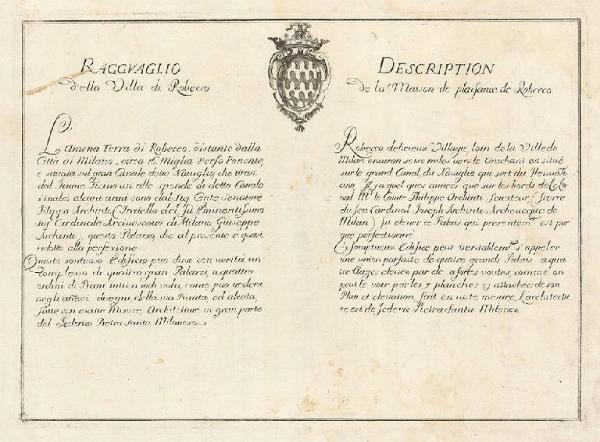 RAGGVAGLIO
della Villa di Robecco
L'Amena Terra di Robecco, distante dalla
Città di Milano, circa 16 Miglia verso Ponente,
è situata sul gran Canale detto Naviglio che viene
dal Fiume Ticino ui alle sponde di detto Canale
alcuni anni sono dal Sig. Conte Senatore
Filippo Archinti (Fratello del fù Eminentissimo
Sig. Cardinale Arcivescovo di Milano Giuseppe
Archinti) questo Palazzo, che al presente è quasi
ridotto alla perfezione
Questo sontuoso Edificio può dirse con verità un
Complesso di quattro gran Palazzi, a quattro
ordini di Piani tutti a vol, come può vedersi
negli annessi disegni, della sua Pianta, ed alzata,
fatte con esatte Misure, Architetture in gran parte
del Federico Pietra Santa Milanese
DESCRIPTION
de la Maison de plaisance de Robecco
Robecco delicieux Village, loin de la Ville de
Milan environ seize miles vers le Couchant, est situé
sur le grand Canal du Naviglia qui sort du fleuve
quelques années que sur les bords de
Canal Mr. le Comte Philippe Archinti Senateur (Frere
du feu Cardinal Joseph Archinti Archeveque de
Milan) fit elever ce Palais qui presentement est pres
que perfectionné
Ce somptueux Edifice peut veritablement s'appeler
une union parfaite de quatre grands Palais a qua
tre Etages elevez par de fortes voutes, comme on
peut le voir par les planches cy attachées de son
Plan et elevation, fait en juste mesure, L'architectu
re est de Federic Pietra Santa Milanez